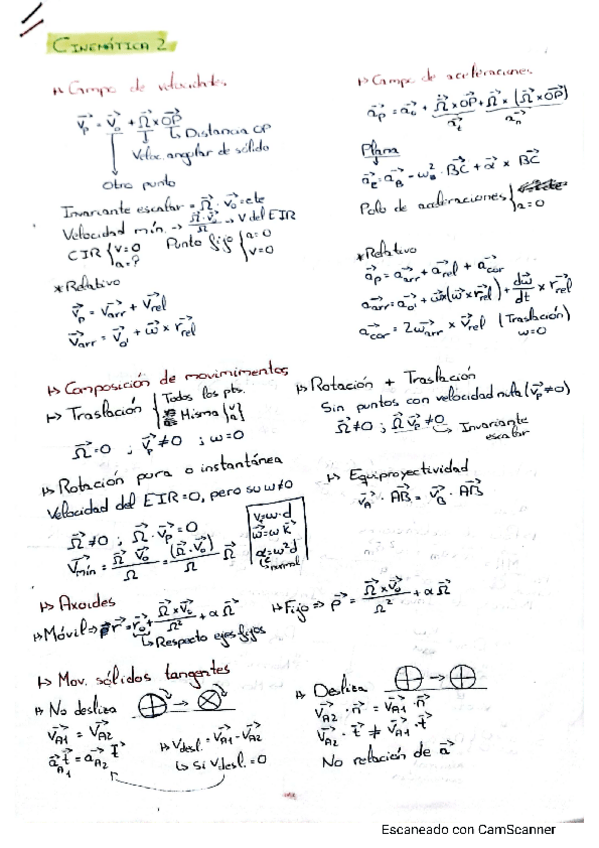 CINEMÁTICA 2
↦ Campo de velocidades
v⃗p = v⃗o + Ω⃗ × OP⃗
↳ Distancia OP
Veloc. angular de sólido
Otro punto
Invariante escalar = Ω⃗ · v⃗o = cte
Velocidad mín. → Ω⃗ · v⃗o / Ω → V del EIR
CIR { v=0 a=? Punto fijo { a=0 v=0
* Relativo
v⃗p = v⃗arr + v⃗rel
v⃗arr = v⃗o' + ω⃗ × r⃗rel
↦ Campo de aceleraciones
a⃗p = a⃗o + Ω⃗̇ × OP⃗ + Ω⃗ × (Ω⃗ × OP⃗)
a⃗t a⃗n
Plana
a⃗C = a⃗B - ω² · BC⃗ + α⃗ × BC⃗
Polo de aceleraciones { a=0
* Relativo
a⃗p = a⃗arr + a⃗rel + a⃗cor
a⃗arr = a⃗o' + ω⃗ × (ω⃗ × r⃗rel) + dω⃗/dt × r⃗rel
a⃗cor = 2ω⃗arr × v⃗rel (Traslación) ω=0
↦ Composición de movimimentos
↦ Traslación { Todos los pts. Misma { v⃗ a⃗ }
Ω⃗=0 ; v⃗p≠0 ; ω=0
↦ Rotación + Traslación
Sin puntos con velocidad nula (v⃗p≠0)
Ω⃗≠0 ; Ω⃗ v⃗p ≠0
↳ Invariante escalar
↦ Rotación pura o instantánea
Velocidad del EIR=0, pero su ω≠0
Ω⃗≠0 ; Ω⃗ · v⃗p = 0
v⃗mín = Ω⃗ v⃗o / Ω = (Ω⃗ · v⃗o) / Ω · Ω⃗
v=ω·d
ω⃗=ω k⃗
α=ω²d
↳ normal
↦ Equiproyectividad
v⃗A · AB⃗ = v⃗B · AB⃗
↦ Axoides
↦ Móvil ⇒ r⃗ = r⃗o + Ω⃗ × v⃗o / Ω² + α Ω⃗
↳ Respecto ejes fijos
↦ Fijo ⇒ ρ⃗ = Ω⃗ × v⃗o / Ω² + α Ω⃗
↦ Mov. sólidos tangentes
↦ No desliza
v⃗A1 = v⃗A2
a⃗A1 t⃗ = a⃗A2 t⃗
↦ v desl. = v⃗A1 - v⃗A2
↳ Si v desl. = 0
↦ Desliza
v⃗A2 · n⃗ = v⃗A1 · n⃗
v⃗A2 · t⃗ ≠ v⃗A1 · t⃗
No relación de a⃗
Escaneado con CamScanner